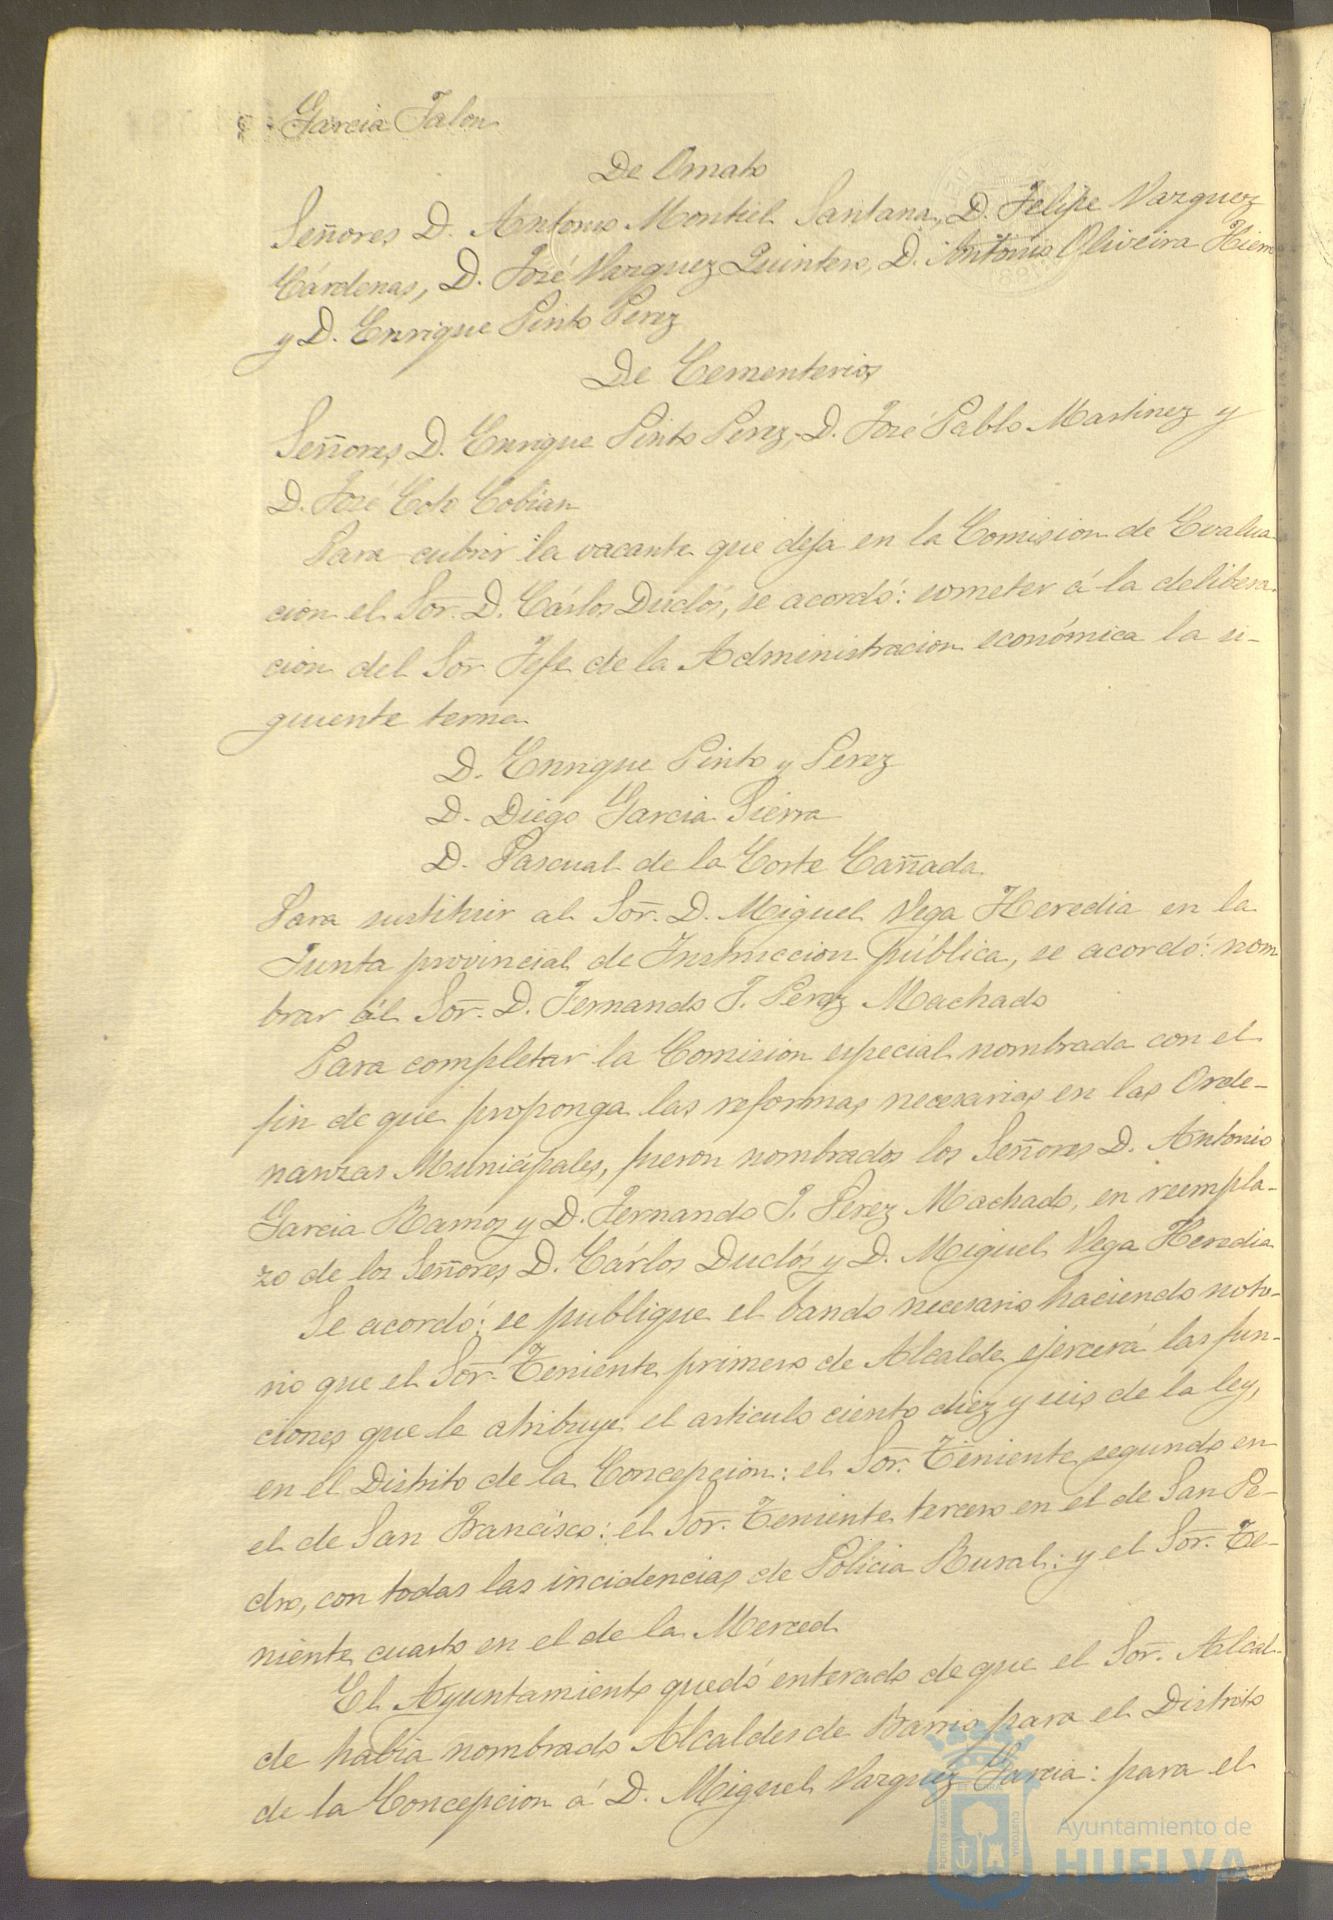 Garcia Talon
De Ornato
Señores D. Antonio Montiel Santana, D. Felipe Vazquez
Cárdenas, D. José Vazquez Quintero, D. Antonio Oliveira Hierro
y D. Enrique Pinto Perez
De Cementerios
Señores D. Enrique Pinto Perez, D. José Pablo Martinez y
D. José Coto Cobian
Para cubrir la vacante que deja en la Comision de Evalua
cion el Sor. D. Cárlos Duclós, se acordó: someter á la delibera
cion del Sor Jefe de la Administracion económica la si-
guiente terna
D. Enrique Pinto y Perez
D. Diego Garcia Sierra
D. Pascual de la Corte Cañada
Para sustituir al Sor. D. Miguel Vega Heredia en la
Junta provincial de Instruccion pública, se acordó: nom
brar ál Sor. D. Fernando J. Perez Machado
Para completar la Comision especial nombrada con el
fin de que proponga las reformas necesarias en las Orde-
nanzas Municipales, fueron nombrados los Señores D. Antonio
Garcia Ramos y D. Fernando J. Perez Machado, en reempla-
zo de los Señores D. Cárlos Duclós y D. Miguel Vega Heredia
Se acordó: se publique el bando necesario haciendo noto-
rio que el Sor. Teniente primero de Alcalde ejercerá las fun-
ciones que le atribuye el articulo ciento diez y seis de la ley,
en el Distrito de la Concepcion: el Sor. Teniente segundo en
el de San Francisco: el Sor. Teniente tercero en el de San Pe-
dro, con todas las incidencias de Policia Rural: y el Sor. Te-
niente cuarto en el de la Merced
El Ayuntamiento quedó enterado de que el Sor. Alcal-
de habia nombrado Alcaldes de Barrio para el Distrito
de la Concepcion á D. Miguel Vazquez Garcia: para el
Ayuntamiento de
HUELVA